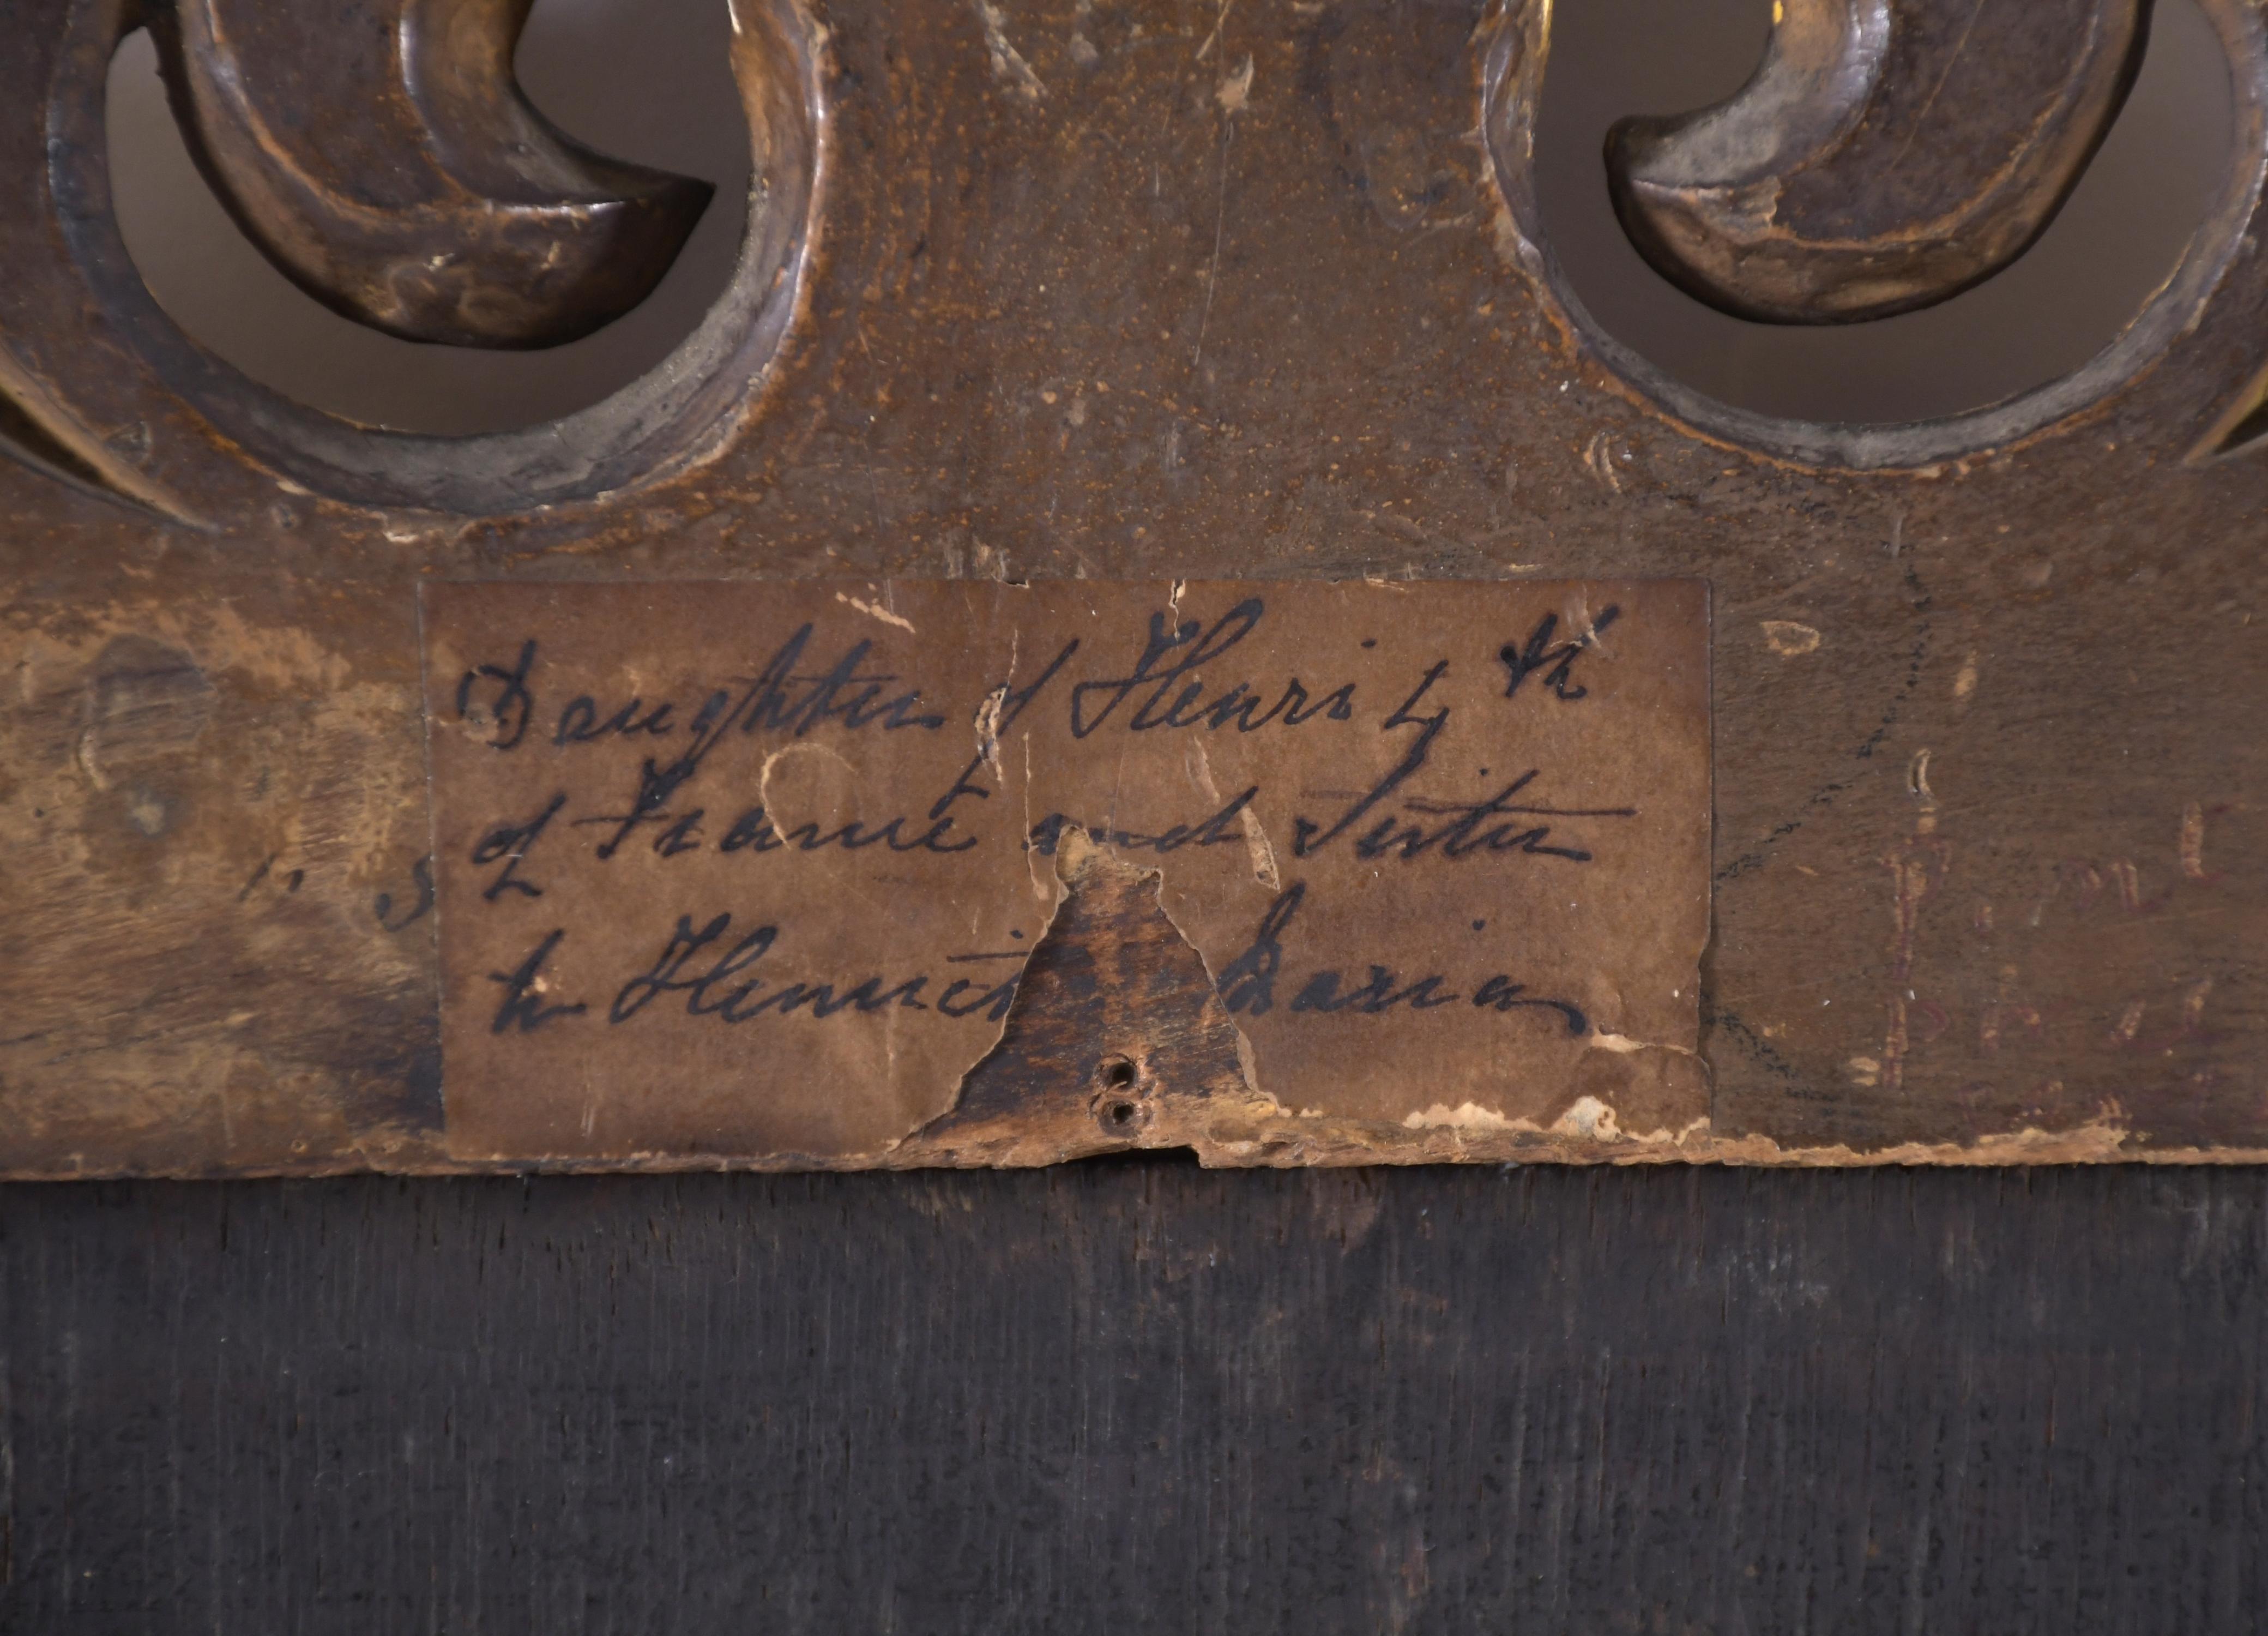 Daughter of Henri 4th
of France and Sister
to Henriet Maria